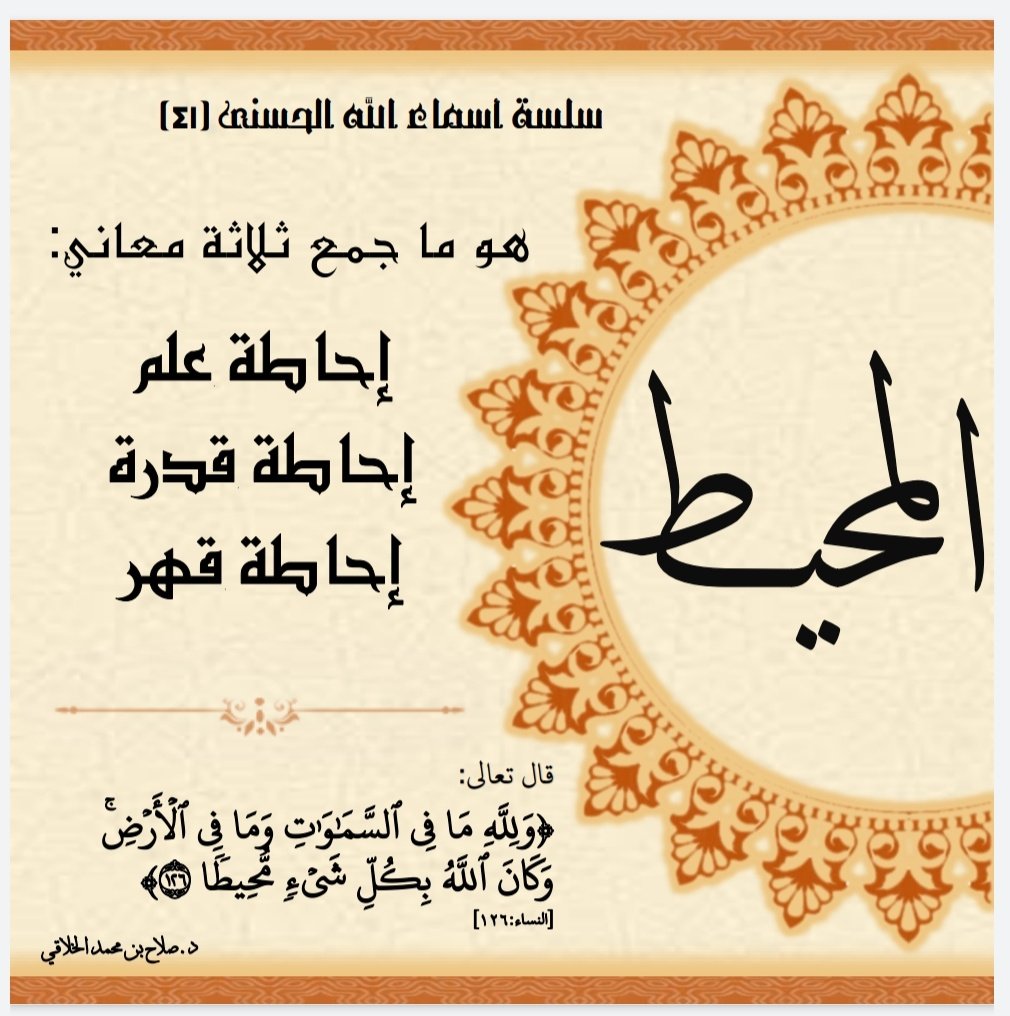 سلسة اسماء الله الحسنى (٤١)
هو ما جمع ثلاثة معاني:
إحاطة علم
إحاطة قدرة
إحاطة قهر
المحيط
قال تعالى:
﴿وَلِلَّهِ مَا فِي ٱلسَّمَٰوَٰتِ وَمَا فِي ٱلۡأَرۡضِۚ
وَكَانَ ٱللَّهُ بِكُلِّ شَيۡءٖ مُّحِيطٗا ١٢٦﴾
[النساء:١٢٦]
د.صلاح بن محمد الخلاقي